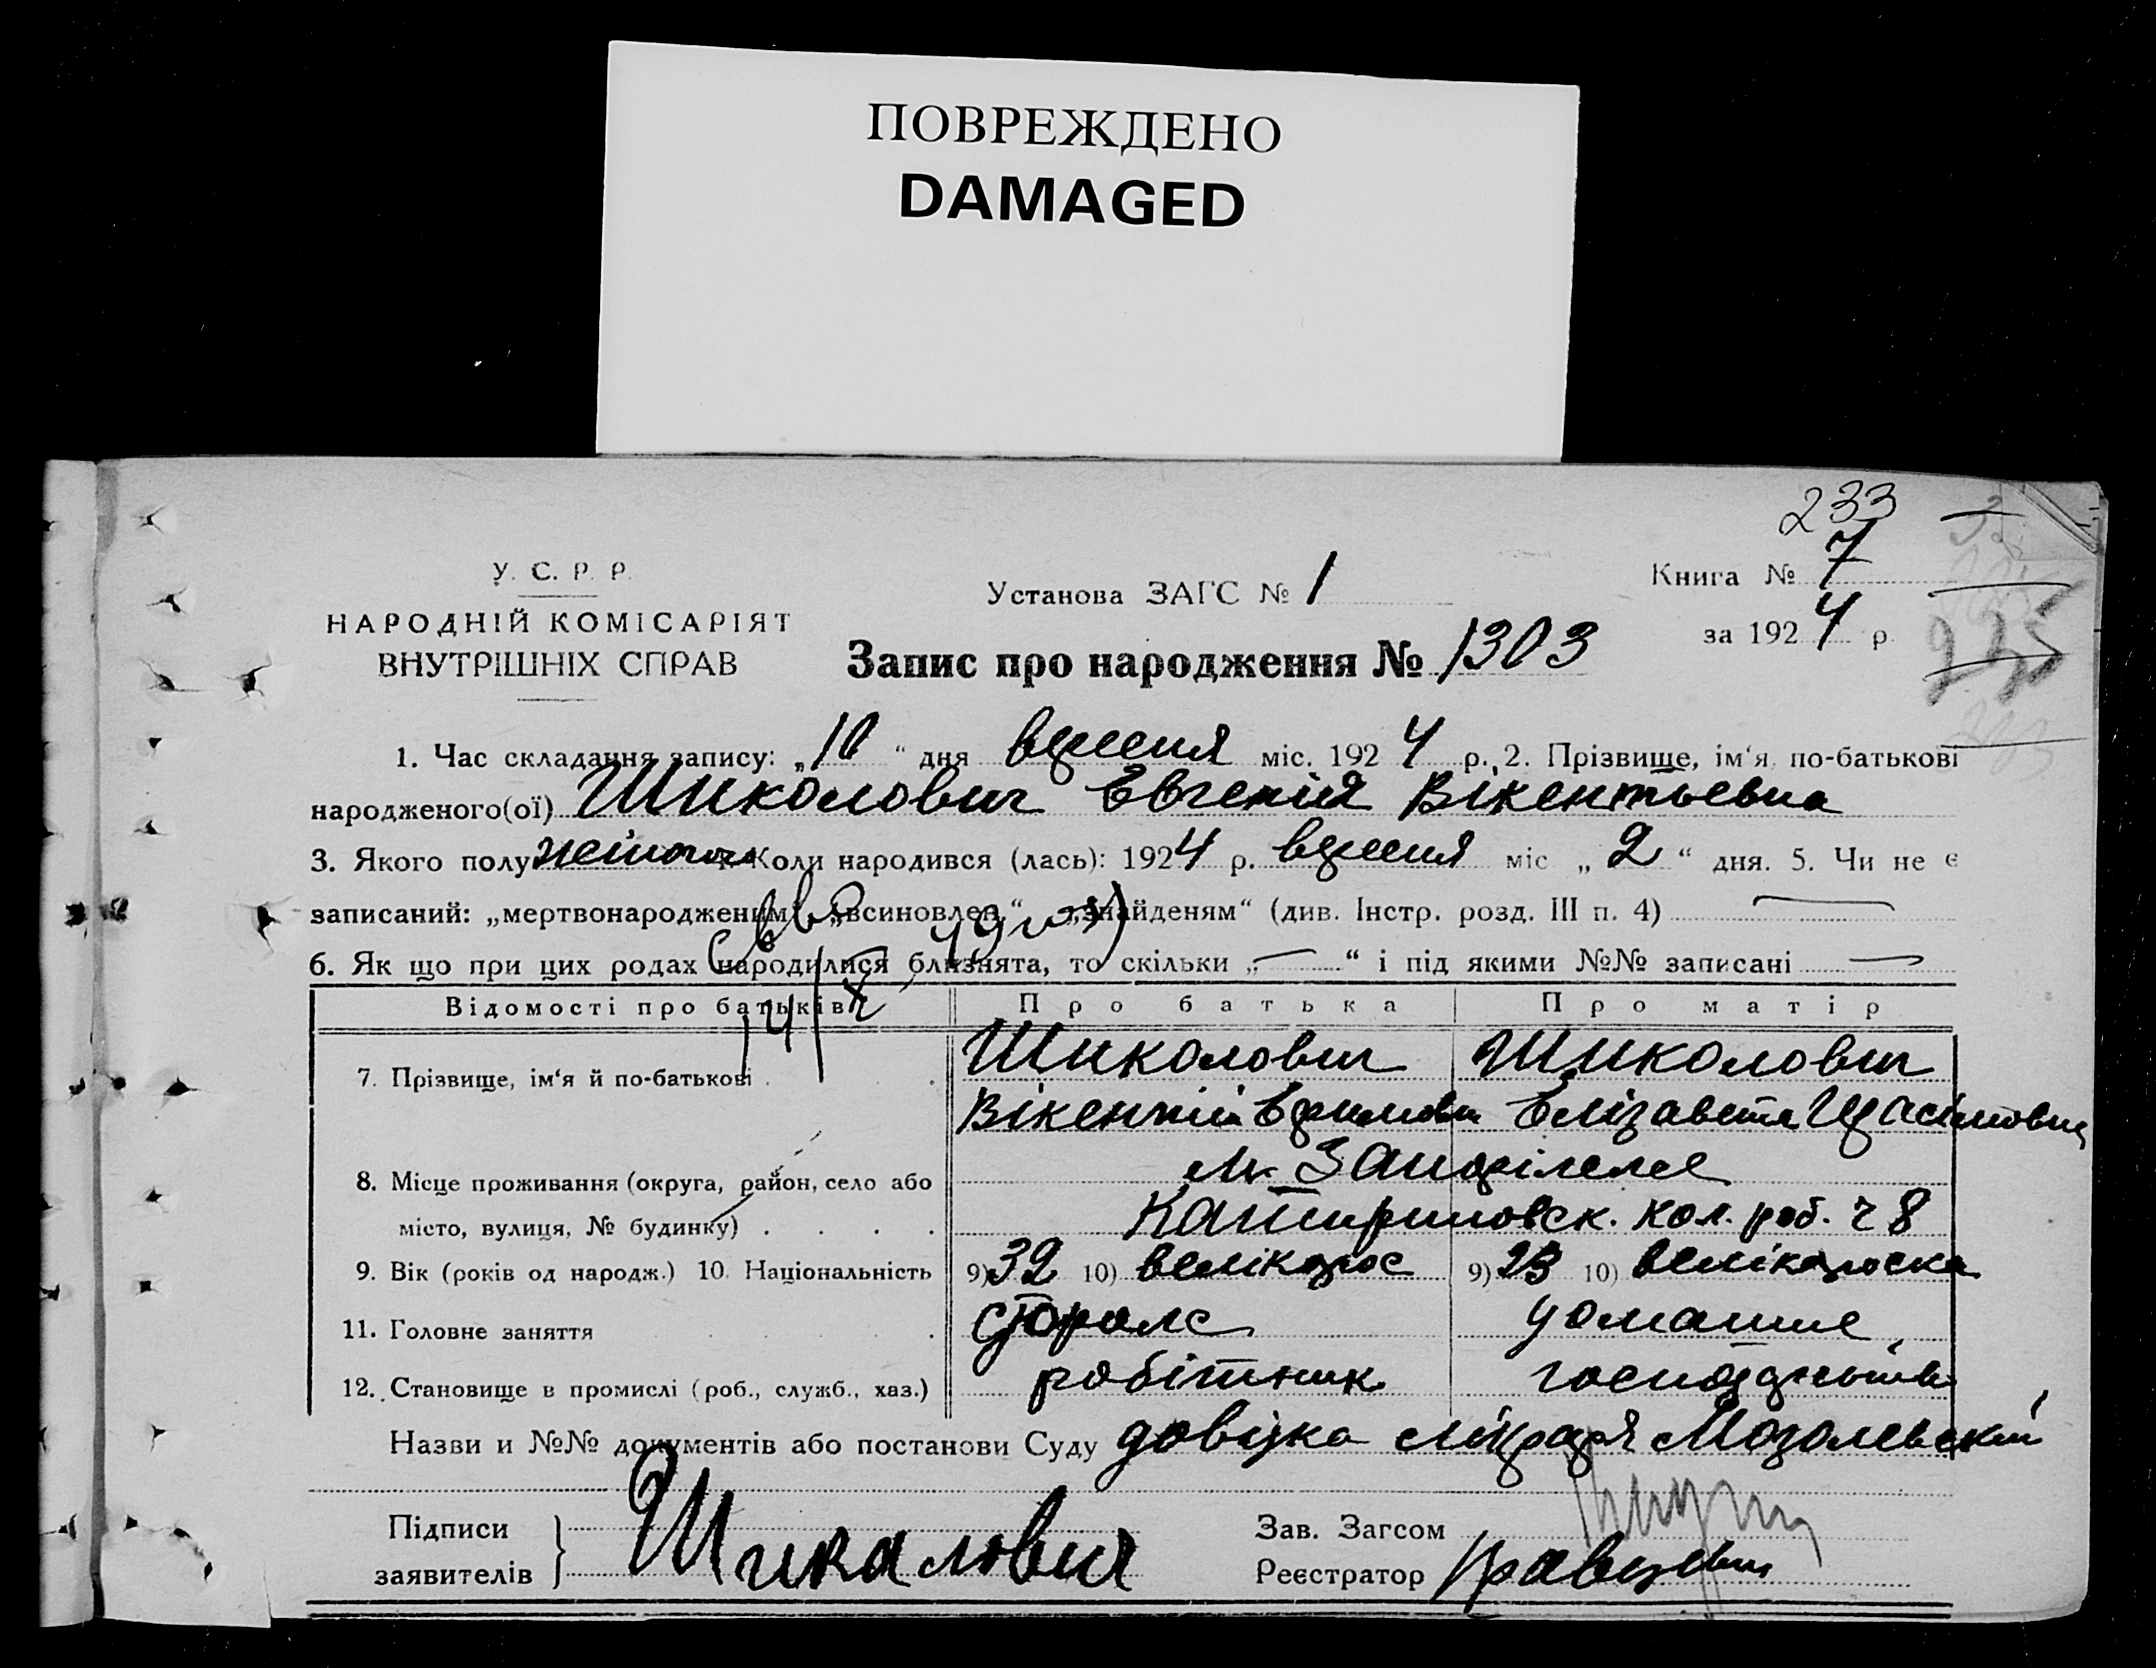 ПОВРЕЖДЕНО
DAMAGED
233
У. С. Р. Р.
НАРОДНІЙ КОМІСАРІЯТ
ВНУТРІШНІХ СПРАВ
Установа ЗАГС № 1
Книга № 7
за 1924 р
Запис про народження № 1303
1. Час складання запису: „10“ дня вересня міс. 1924 р. 2. Прізвище, ім‘я по-батькові
народженого(ої) Шиколович Евгенія Вікентьевна
3. Якого полу жіноча 4. Коли народився (лась): 1924 р. вересня міс „2“ дня. 5. Чи не є
записаний: „мертвонародженим“, „всиновлен“ „знайденям“ (див. Інстр. розд. III п. 4) —
6. Як що при цих родах народилися близнята, то скільки „—“ і під якими №№ записані —
Відомості про батьків Про батька Про матір
7. Прізвище, ім‘я й по-батькові Шиколович Шиколович
Вікентій Елізавета
8. Місце проживання (округа, район, село або
місто, вулиця, № будинку) кол. роб. 8
9. Вік (років од народж.) 10. Національність 9) 32 10) велікорос 9) 23 10) велікороска
11. Головне заняття домашнє
12. Становище в промислі (роб., служб., хаз.) робітник господарство
Назви и №№ документів або постанови Суду довідка лікаря Мозолевскій
Підписи
заявителів Шикалович
Зав. Загсом
Реєстратор